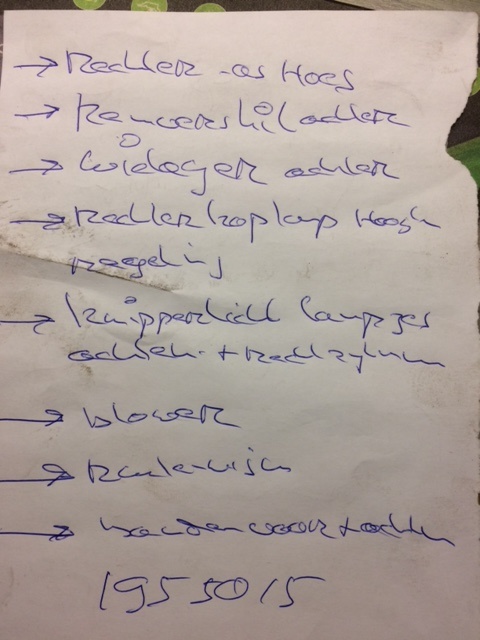 → Rechter -as Hoes
→ Remverskil achter
→ Wiellager achter
→ Rechter koplamp Hoogte
regeling
→ Knipperlicht lampjes
achter + Rechtzijde
→ blower
→ Ruitenwisser
→ banden voor + achter
1955015